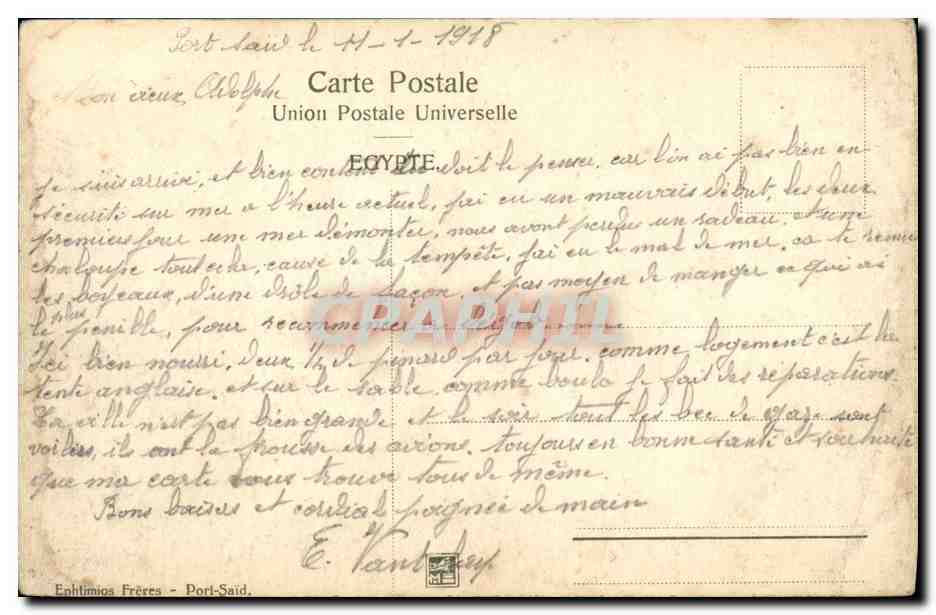 Port Saïd le 11-1-1918
Carte Postale
Mon vieux Adolphe
Union Postale Universelle
EGYPTE.
Je suis arrivé, et bien content doit le penser. car l'on ai pas bien en
sécurité sur mer a l'heure actuel, j'ai eu un mauvais début, les deux
premiers jour une mer démontée, nous avont perdus un radeau. et une
chaloupe tout cela, cause de la tempête, j'ai eu le mal de mer, ca te remu
les boyeaux, d'une drôle de façon, et pas moyen de manger ce qui ai
le plus penible, pour recommencer a
CRAPHIL
Ici bien nourri, deux 1/4 de pinard par jour. comme logement c'est la
tente anglaise. et sur le sable. comme boulo je fait des réparations.
La ville n'est pas bien grande et le soir tout les bec de gaze sont
voilées, ils ont la frousse des avions. toujours en bonne santé et souhaite
que ma carte vous trouve tous de même.
Bons baisers et cordial poignée de main
E.
Ephtimios Frères - Port-Saïd.